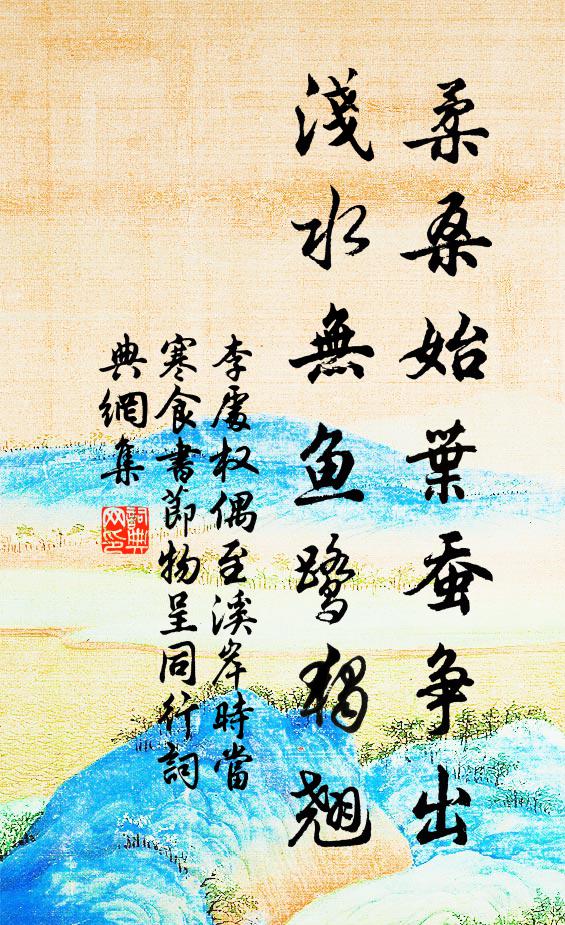 柔桑始葉蚕争出
淺水無魚鷺獨翹
李處权偶至溪岸時當
寒食書節物呈同行詞
典網集
詞典网印